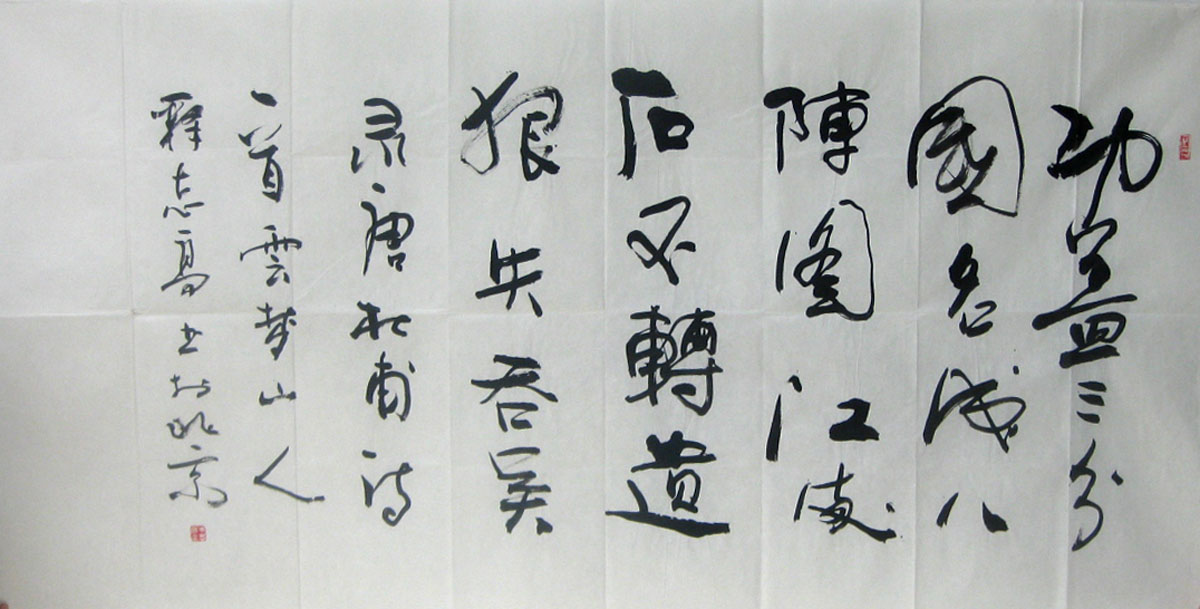 功蓋三分
國名成八
陣圖江流
石不轉遺
恨失吞吴
录唐杜甫诗
一首雲梦山人
釋志高书於北京